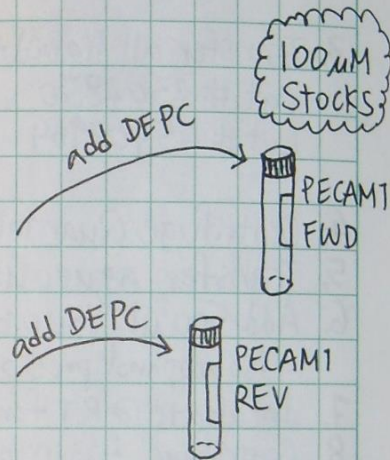 100µM
Stocks
add DEPC
PECAM1
FWD
add DEPC
PECAM1
REV